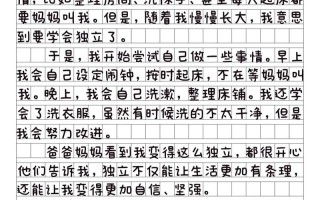 情，比如整理房间、甚至每天起床都
要妈妈叫我。但是，随着我慢慢长大，我意思
到要学会独立了。
于是，我开始尝试自己做一些事情。早上
我会自己设定闹钟，按时起床，不在等妈妈叫
我。晚上，我会自己洗漱，整理床铺。我还学
会了洗衣服，虽然有时候洗的不大干净，但是
我会努力改进。
爸爸妈妈看到我变得这么独立，都很开心
他们告诉我，独立不仅能让生活更加有条理，
还能让我变得更加自信、坚强。